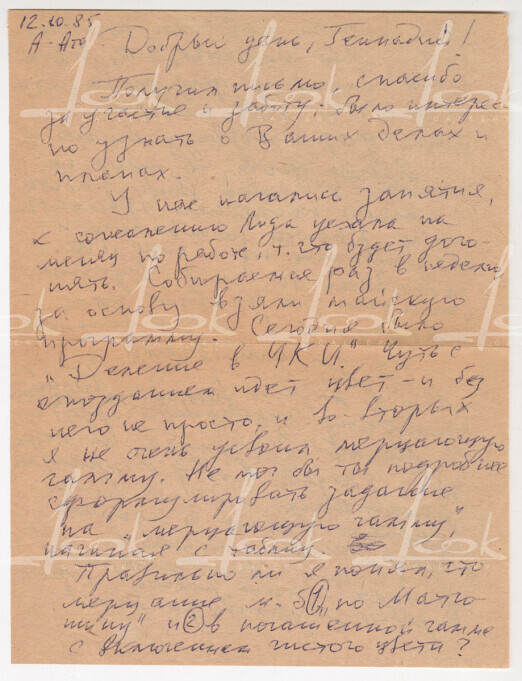 12.10.85
А-Ата Добрый день, Геннадий!
Получил письмо, спасибо
за участие и заботу. Было интерес-
но узнать о Ваших делах и
планах.
У нас начались занятия,
к сожалению Лида уехала на
месяц по работе, т. что будет дого-
нять. Собираемся раз в неделю,
за основу взяли майскую
программу. Сегодня было
"Деление в ЦКИ". Чуть с
опозданием идет цвет – и без
него не просто, и во-вторых
я не очень усвоил мерцающую
гамму. Не мог бы ты подробнее
сформулировать задание
на "мерцающую гамму",
начиная с таблиц.
Правильно ли я понял, что
мерцание м.б. ① "по Матю-
шину" и ② в погашенной гамме
с включением чистого цвета?